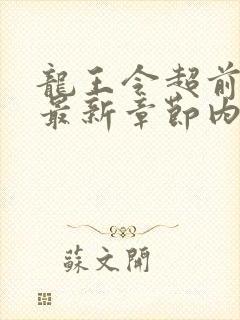 龍王令超前
最新章節內
蘇文開